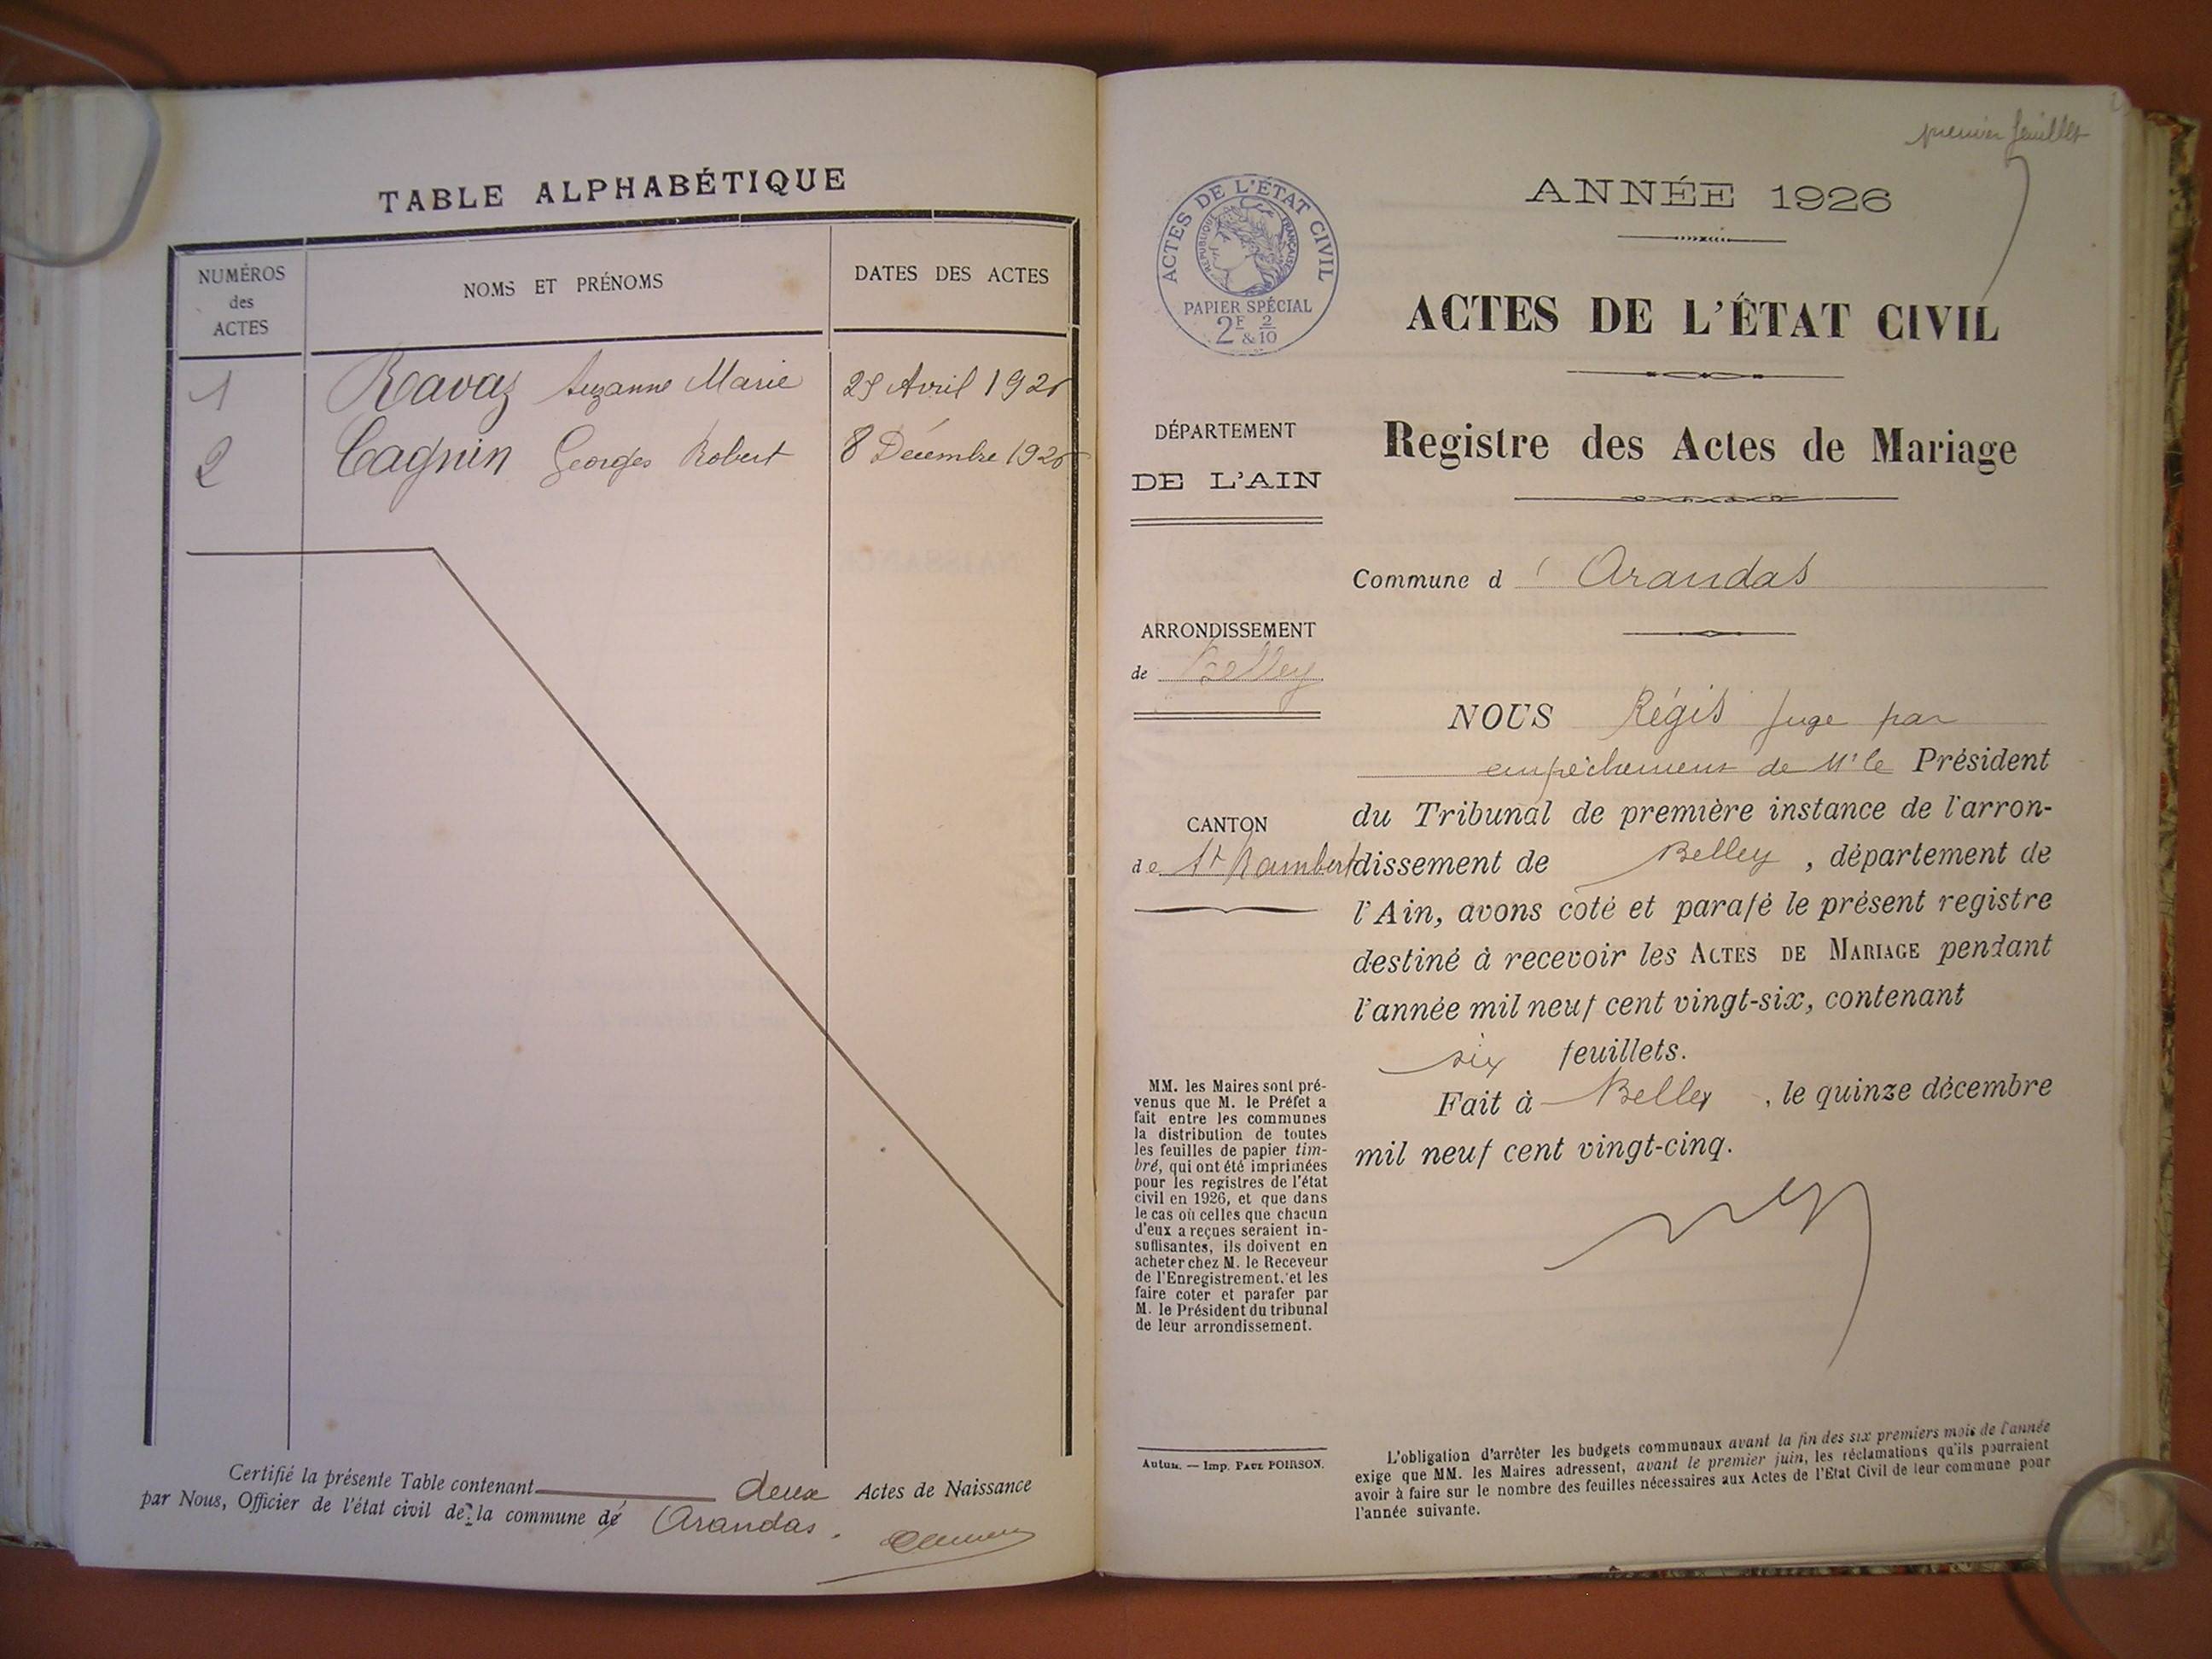 TABLE ALPHABÉTIQUE
NUMÉROS
des
ACTES
NOMS ET PRÉNOMS
DATES DES ACTES
1 Ravaz Suzanne Marie Avril
2 Cagnin Georges Robert 8 Décembre
Certifié la présente Table contenant deux Actes de Naissance
par Nous, Officier de l'état civil de la commune d' Arandas.
premier feuillet
ACTES DE L'ÉTAT CIVIL
RÉPUBLIQUE FRANÇAISE
PAPIER SPÉCIAL
2F & 2/10
ANNÉE 1926
ACTES DE L'ÉTAT CIVIL
Registre des Actes de Mariage
DÉPARTEMENT
DE L'AIN
ARRONDISSEMENT
de Belley
CANTON
de St Rambert
MM. les Maires sont pré-
venus que M. le Préfet a
fait entre les communes
la distribution de toutes
les feuilles de papier tim-
bré, qui ont été imprimées
pour les registres de l'état
civil en 1926, et que dans
le cas où celles que chacun
d'eux a reçues seraient in-
suffisantes, ils doivent en
acheter chez M. le Receveur
de l'Enregistrement, et les
faire coter et parafer par
M. le Président du tribunal
de leur arrondissement.
Autun. — Imp. PAUL POIRSON.
Commune d' Arandas
NOUS Régis juge par
empêchement de Mr le Président
du Tribunal de première instance de l'arron-
dissement de Belley, département de
l'Ain, avons coté et parafé le présent registre
destiné à recevoir les ACTES DE MARIAGE pendant
l'année mil neuf cent vingt-six, contenant
six feuillets.
Fait à Belley, le quinze décembre
mil neuf cent vingt-cinq.
L'obligation d'arrêter les budgets communaux avant la fin des six premiers mois de l'année
exige que MM. les Maires adressent, avant le premier juin, les réclamations qu'ils pourraient
avoir à faire sur le nombre des feuilles nécessaires aux Actes de l'État Civil de leur commune pour
l'année suivante.